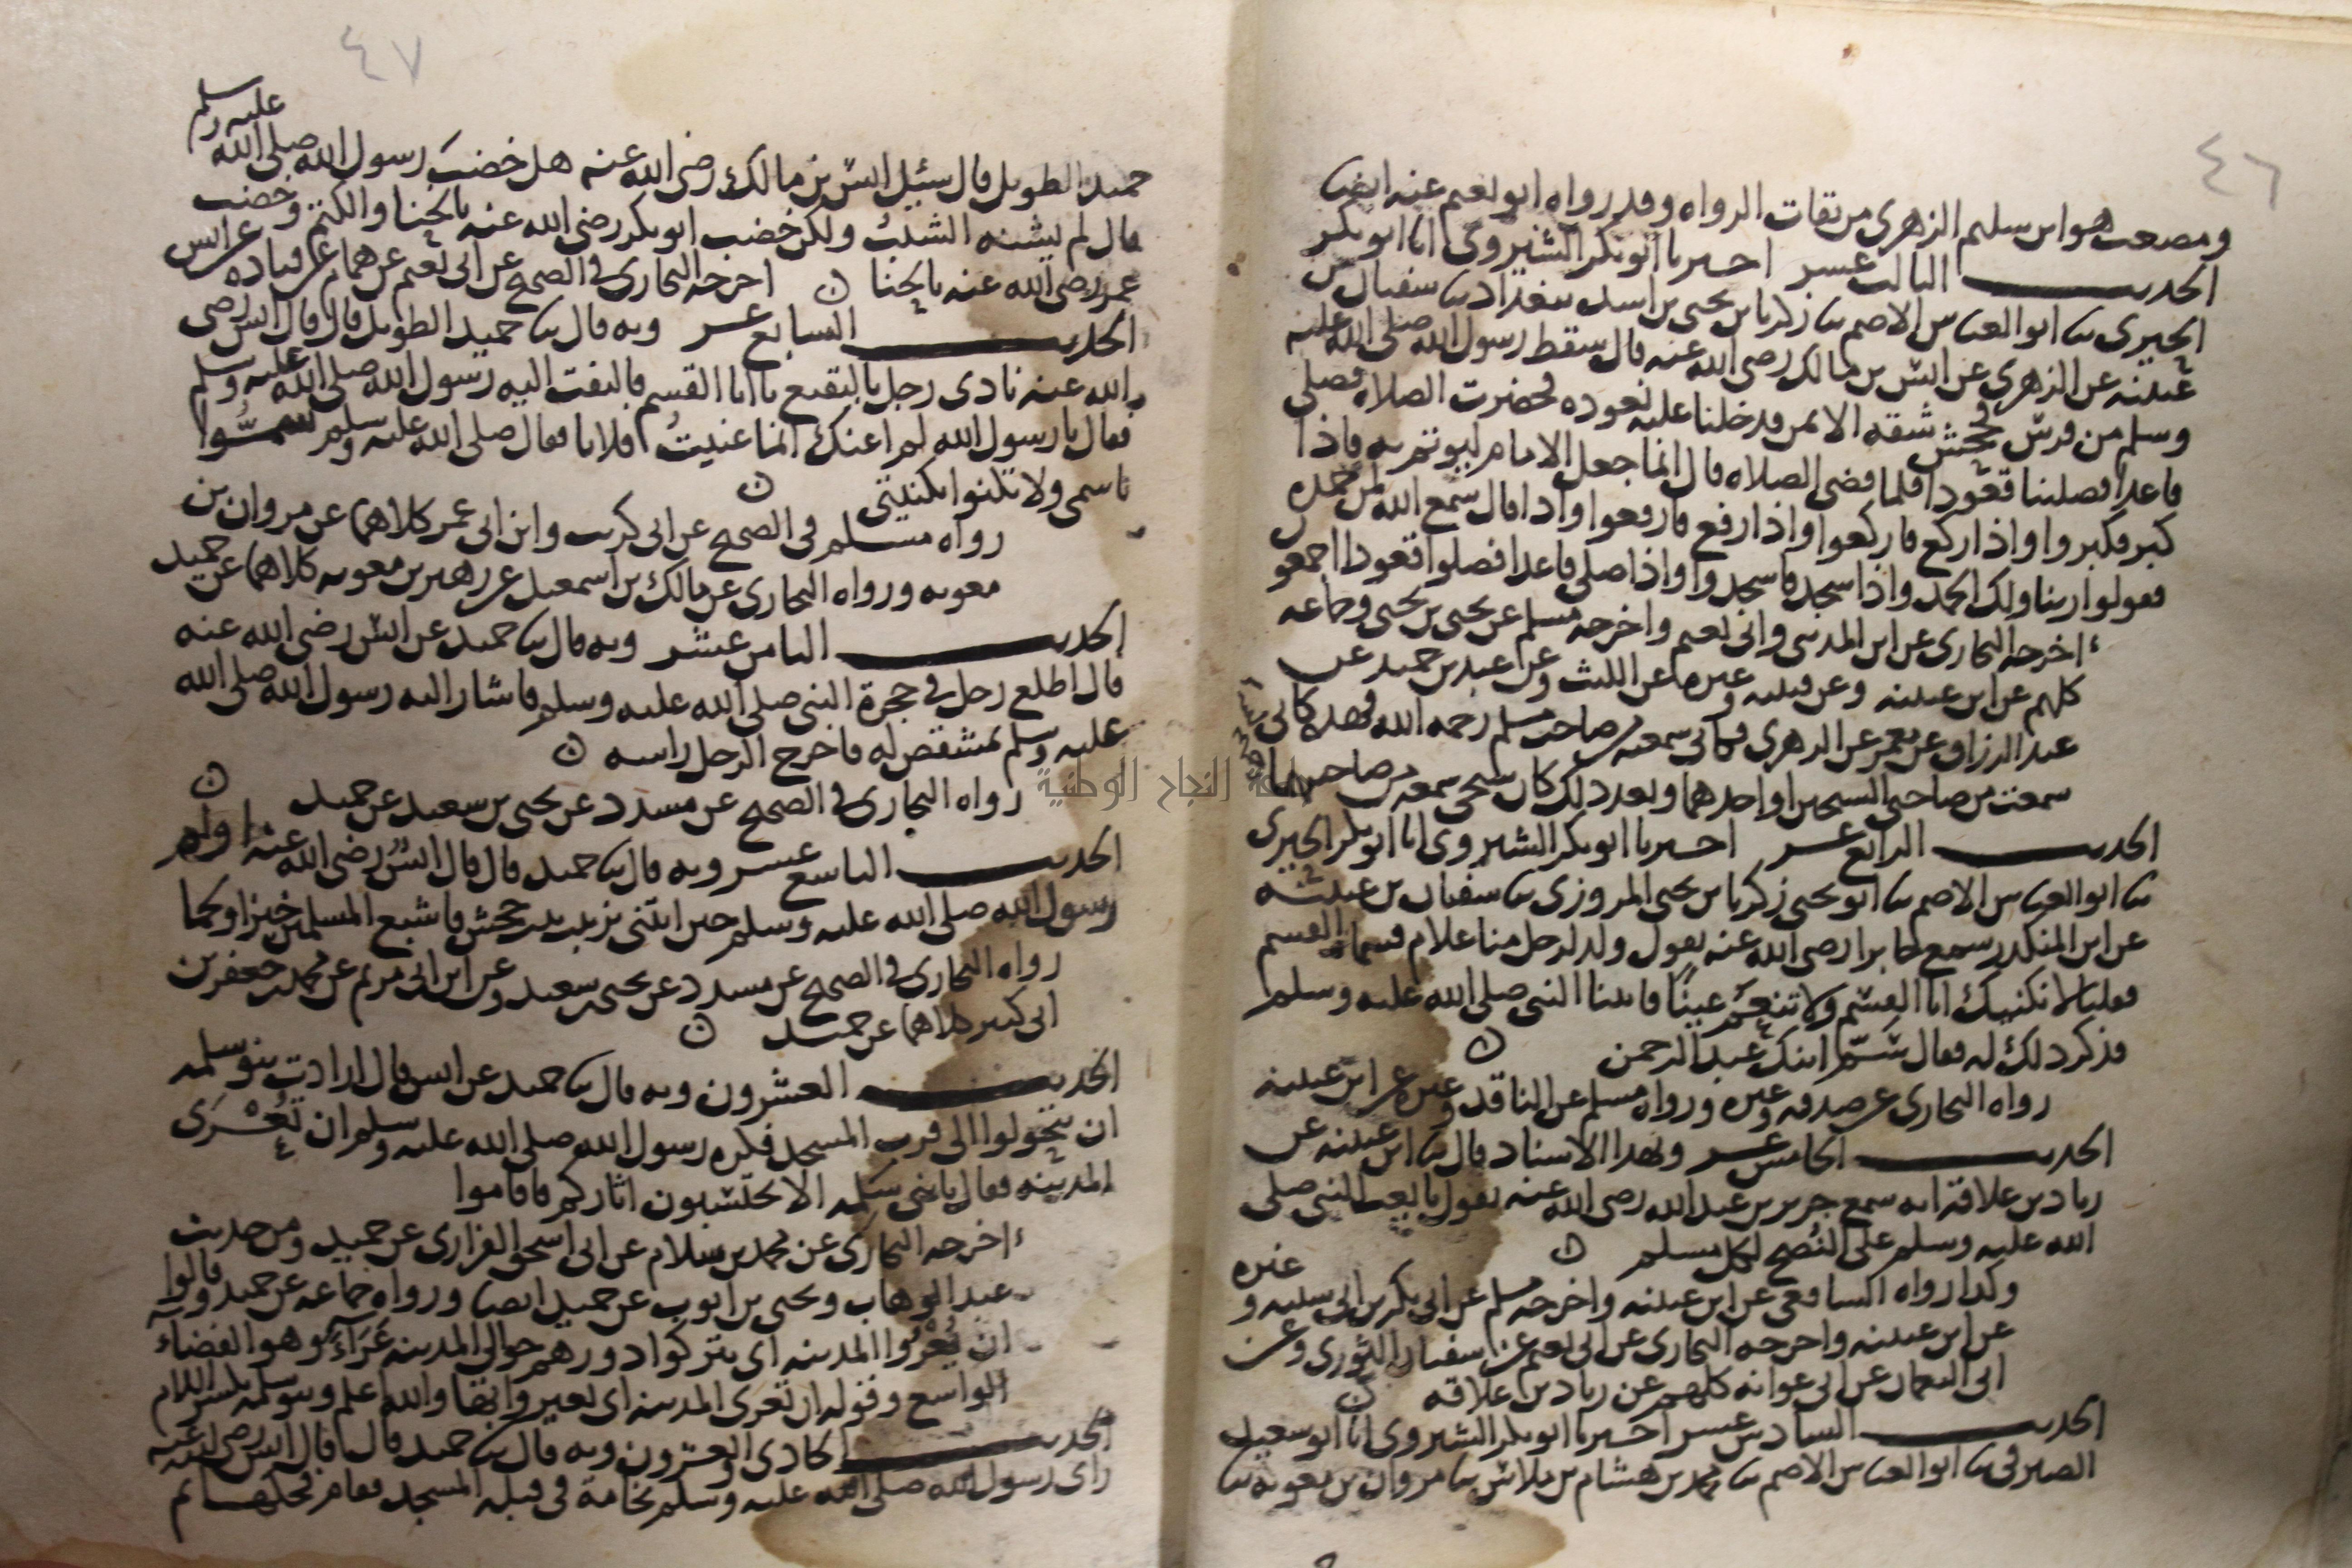 ٤٦
ومصعب هو ابن سليم الزهري من ثقات الرواه وقد رواه ابو نعيم عنه ايضا
الحديث الثالث عشر اخبرنا ابو بكر الشيروي انا ابو بكر
الحيري ثنا ابو العباس الاصم ثنا زكريا بن يحيى بن اسد ببغداد ثنا سفيان بن
عيينه عن الزهري عن انس بن مالك رضي الله عنه قال سقط رسول الله صلى الله عليه
وسلم من فرس فجحش شقه الايمن فدخلنا عليه نعوده فحضرت الصلاه فصلى
قاعدا فصلينا قعودا فلما قضى الصلاه قال انما جعل الامام ليوتم به فاذا
كبر فكبروا واذا ركع فاركعوا واذا رفع فارفعوا واذا قال سمع الله لمن حمده
فقولوا ربنا ولك الحمد واذا سجد فاسجدوا واذا صلى قاعدا فصلوا قعودا اجمعون
اخرجه البخاري عن ابن المديني وابي نعيم واخرجه مسلم عن يحيى بن يحيى وجماعه
كلهم عن ابن عيينه وعن قتيبه وغيره عن الليث وعن عبد بن حميد عن
عبد الرزاق عن معمر عن الزهري فكاني سمعته من صاحب مسلم رحمه الله فهذا كاني
سمعته من صاحبي الشيخين او احدهما وبعد ذلك كان شيخي سمعه من صاحبهما
الحديث الرابع عشر اخبرنا ابو بكر الشيروي انا ابو بكر الحيري
ثنا ابو العباس الاصم ثنا ابو يحيى زكريا بن يحيى المروزي ثنا سفيان بن عيينه
عن ابن المنكدر سمع جابرا رضي الله عنه يقول ولد لرجل منا غلام فسماه القسم
فقلنا لا نكنيك ابا القسم ولا ننعم عينا فاتينا النبي صلى الله عليه وسلم
فذكر ذلك له فقال سم ابنك عبد الرحمن
رواه البخاري عن صدقه وغيره ورواه مسلم عن الناقد وغيره عن ابن عيينه
الحديث الخامس عشر وبهذا الاسناد قال ثنا ابن عيينه عن
زياد بن علاقة انه سمع جرير بن عبد الله رضي الله عنه يقول بايعت النبي صلى
الله عليه وسلم على النصح لكل مسلم
وكذا رواه الشافعي عن ابن عيينه واخرجه مسلم عن ابي بكر بن ابي شيبه وغيره
عن ابن عيينه واخرجه البخاري عن ابي نعيم عن سفيان الثوري وعن
ابي النعمان عن ابي عوانه كلهم عن زياد بن علاقه
الحديث السادس عشر اخبرنا ابو بكر الشيروي انا ابو سعيد
الصيرفي ثنا ابو العباس الاصم ثنا محمد بن هشام بن ملاس ثنا مروان بن معويه ثنا
٤٧
حميد الطويل قال سئل انس بن مالك رضي الله عنه هل خضب رسول الله صلى الله عليه وسلم
قال لم يشنه الشيب ولكن خضب ابو بكر رضي الله عنه بالحنا والكتم وخضب
عمر رضي الله عنه بالحنا اخرجه البخاري في الصحيح عن ابي نعيم عن همام عن قتاده عن انس
الحديث السابع عشر وبه قال ثنا حميد الطويل قال قال انس رضي
الله عنه نادى رجل بالبقيع يا ابا القسم فالتفت اليه رسول الله صلى الله عليه وسلم
فقال يا رسول الله لم اعنك انما عنيت فلانا فقال صلى الله عليه وسلم تسموا
باسمي ولا تكنوا بكنيتي
رواه مسلم في الصحيح عن ابي كريب وابن ابي عمر كلاهما عن مروان بن
معويه ورواه البخاري عن مالك بن اسمعيل عن زهير بن معويه كلاهما عن حميد
الحديث الثامن عشر وبه قال ثنا حميد عن انس رضي الله عنه
قال اطلع رجل في حجرة النبي صلى الله عليه وسلم فاشار اليه رسول الله صلى الله
عليه وسلم بمشقص له فاخرج الرجل راسه
رواه البخاري في الصحيح عن مسدد عن يحيى بن سعيد عن حميد
الحديث التاسع عشر وبه قال ثنا حميد قال قال انس رضي الله عنه اولم
رسول الله صلى الله عليه وسلم حين ابتنى بزينب بنت جحش فاشبع المسلمين خبزا ولحما
رواه البخاري في الصحيح عن مسدد عن يحيى بن سعيد وعن ابن ابي مريم عن محمد بن جعفر بن
ابي كثير كلاهما عن حميد
الحديث العشرون وبه قال ثنا حميد عن انس قال ارادت بنو سلمه
ان يتحولوا الى قرب المسجد فكره رسول الله صلى الله عليه وسلم ان تعرى
المدينه فقال يا بني سلمه الا تحتسبون اثاركم فاقاموا
اخرجه البخاري عن محمد بن سلام عن ابي اسحق الفزاري عن حميد ومن حديث
عبد الوهاب ويحيى بن ايوب عن حميد ايضا ورواه جماعه عن حميد وقالوا
ان يعروا المدينه اي يتركوا دورهم حوالي المدينه عراء وهو الفضاء
الواسع وقوله ان تعرى المدينه اي والله اعلم وبنو سلمه بكسر اللام
الحديث الحادي والعشرون وبه قال ثنا حميد قال قال انس رضي الله عنه
راى رسول الله صلى الله عليه وسلم نخامة في قبله المسجد فقام فحكها ثم
جامعة النجاح الوطنية